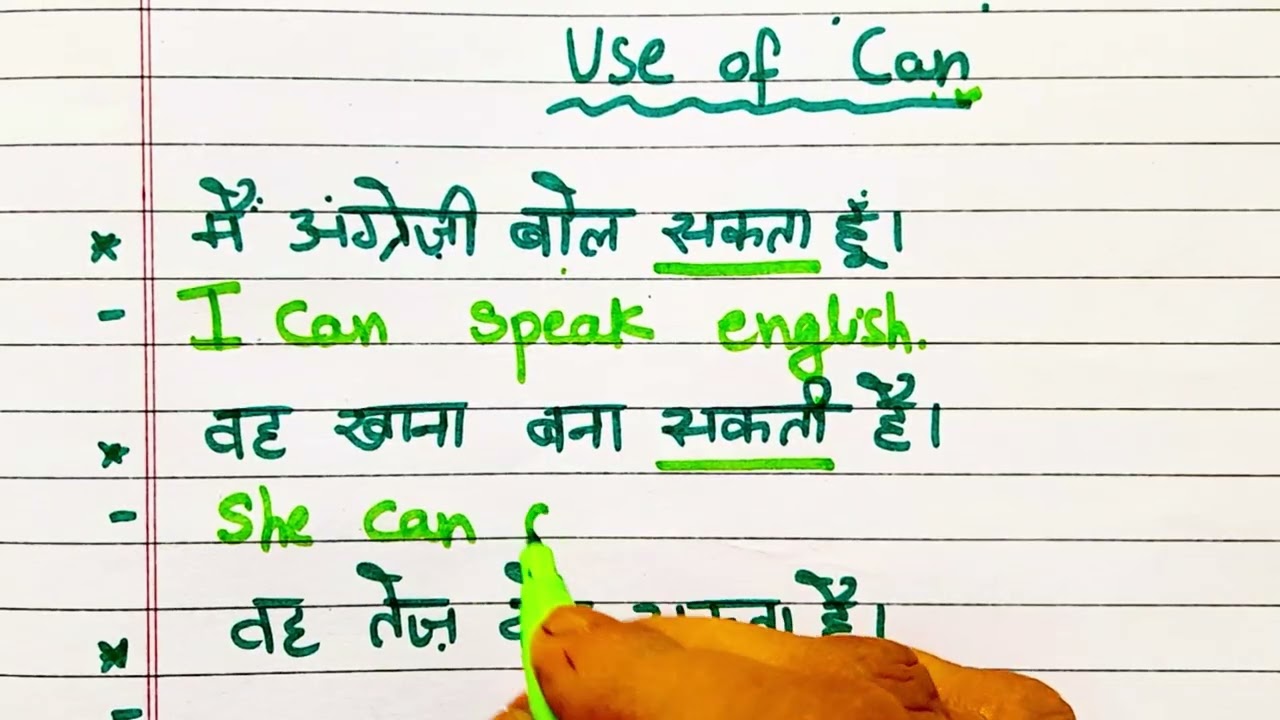 Use of Can
* मैं अंग्रेज़ी बोल सकता हूँ।
- I can speak english.
* वह खाना बना सकती है।
- She can c
* वह तेज़ है।
-